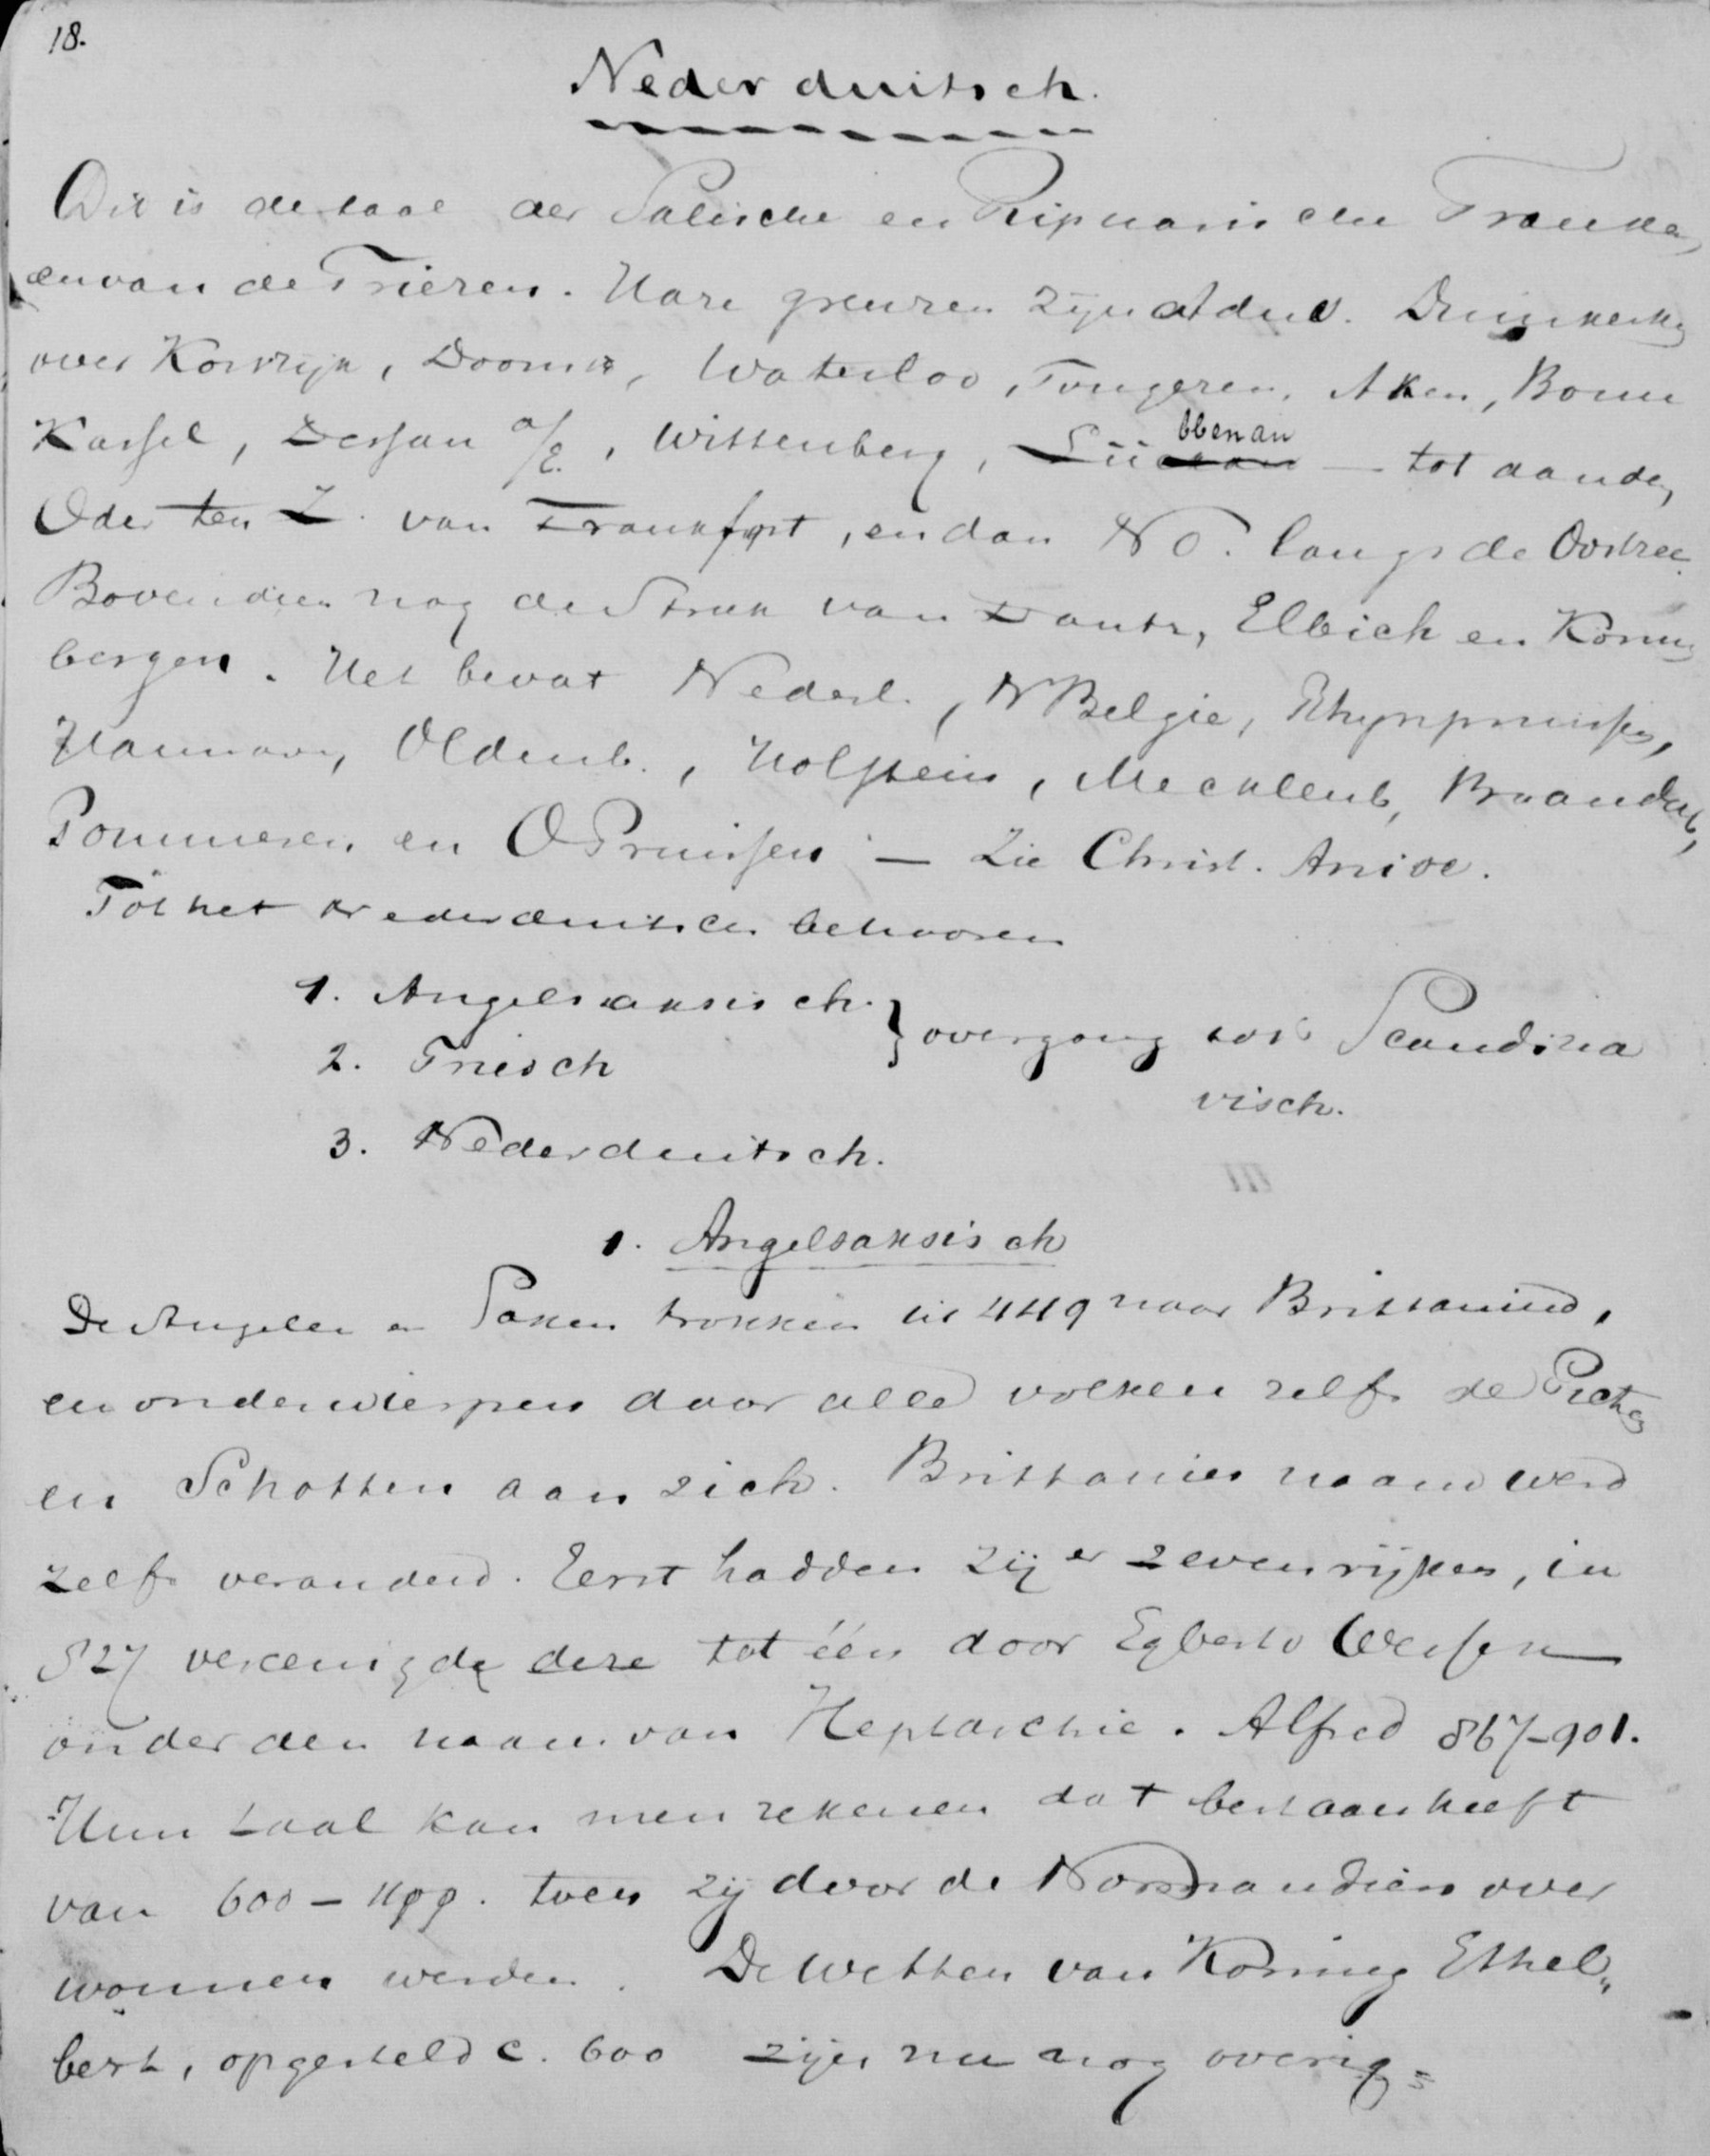 18.
Nederduitsch.
Dit is de taal der Salische en Ripuarische Franken
en van de Friezen. Hare grenzen zijn Duinkerken
over Kortrijk, Doornik, Waterloo, Tongeren, Aken, Bonn
Kassel, Dessau a/E., Wittenberg, Lübbenau — tot aan den
Oder ten Z. van Frankfort, en dan NO. langs de Oostzee.
Bovendien nog de Streek van Dantz, Elbich en Konings
bergen. Het bevat Nederl., N Belgie, Rhijnpruissen,
Hannover, Oldenb., Holstein, Mecklenb, Braandenb,
Pommeren en O Pruissen — Zie Christ.
Tot het Nederduitsch behooren
1. Angelsaksisch.
2. Friesch } overgang tot Scandina
visch.
3. Nederduitsch.
1. Angelsaksisch
De Angelen en Saxen trokken in 449 naar Brittanied,
en onderwierpen daar alle volken zelfs de Picten
en Schotten aan zich. Brittanies naam werd
zelfs veranderd. Eerst hadden zij er zeven rijken, in
827 vereenigde deze tot één door Egbert v Wessex
onder den naam van Heptarchie. Alfred 867-901.
Hun taal kan men rekenen dat bestaan heeft
van 600 – 1100. toen zij door de Normandiers over
wonnen werden. De Wetten van Koning Ethel„
bert, opgesteld c. 600 zijn nu nog overig=